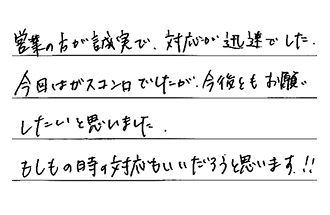 営業の方が誠実で、対応が迅速でした.
今回はガスコンロでしたが、今後ともお願い
したいと思いました.
もしもの時の対応もいいだろうと思います!!